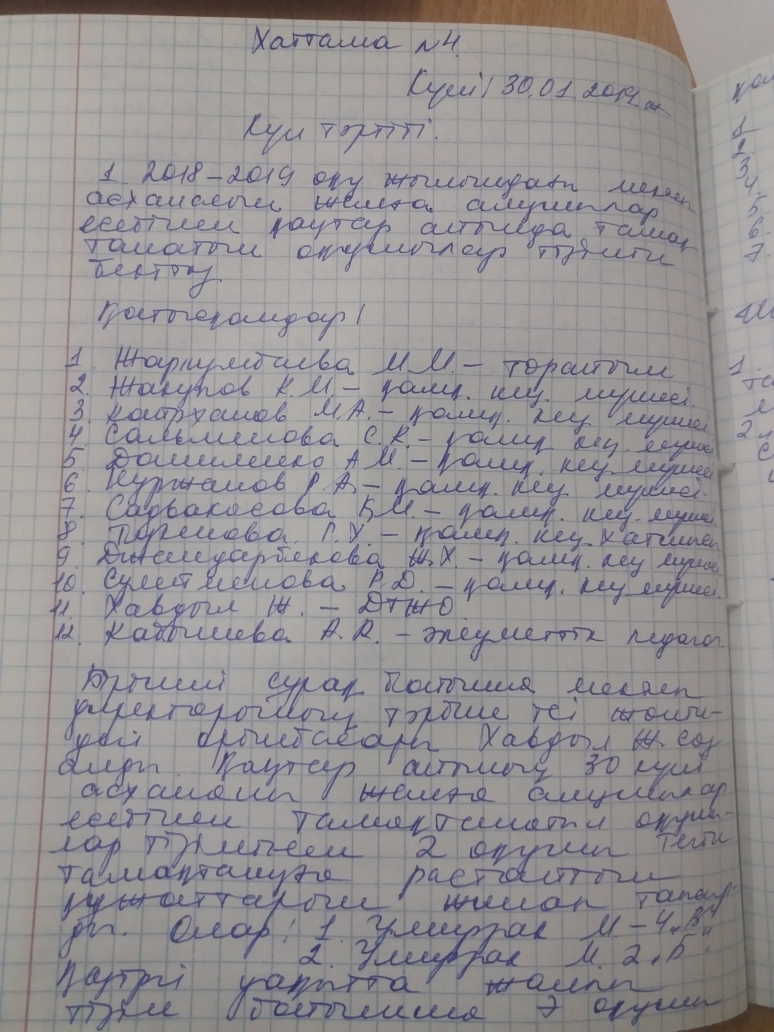 Хаттама №4.
Күні: 30.01.2019ж
Күн тәртібі.
1. 2018-2019 оқу жылындағы мектеп
асхансын жалға алушылар
есебінен қаңтар айында тамақ
танатын оқушылар тізімін
бекіту
Қатысқандар:
1. Жаркумбаева М.М. - төрайым
2. Жакупов К.М - қамқ. кең. мүшесі.
3. Каирханов М.А. - қамқ. кең мүшесі
4. Сальменова С.К. - қамқ кең мүшесі
5. Даниленко А.М. - қамқ. кең. мүшесі
6. Нуржанов Р.А. - қамқ. кең. мүшесі.
7. Садвакасова Б.М. - қамқ. кең. мүшесі.
8. Г.Х. - қамқ. кең. хатшысы
9. Джандарбекова Ж.Х. - қамқ. кең мүшесі
10. Р.Д. - қамқ. кең. мүшесі.
11. Хавдыл Ж. - ДТЖО
12. Капышева А.К. - әлеуметтік педагог
Бірінші сұрақ бойынша мектеп
директорының тәрбие ісі жөнін-
дегі орынбасары Хавдыл Ж. сөз
алды. Қаңтар айының 30 күні
асхананы жалға алушылар
есебінен тамақтанатын оқушы-
лар тізімінен 2 оқушы тегін
тамақтануға растайтын
құжаттарын жинап тапсыр
ды. Олар: 1. Умирзак М - 4 „В"
2. Умирзак М. 2 „Б".
Қазіргі уақытта жалпы
тізім бойынша 7 оқушы